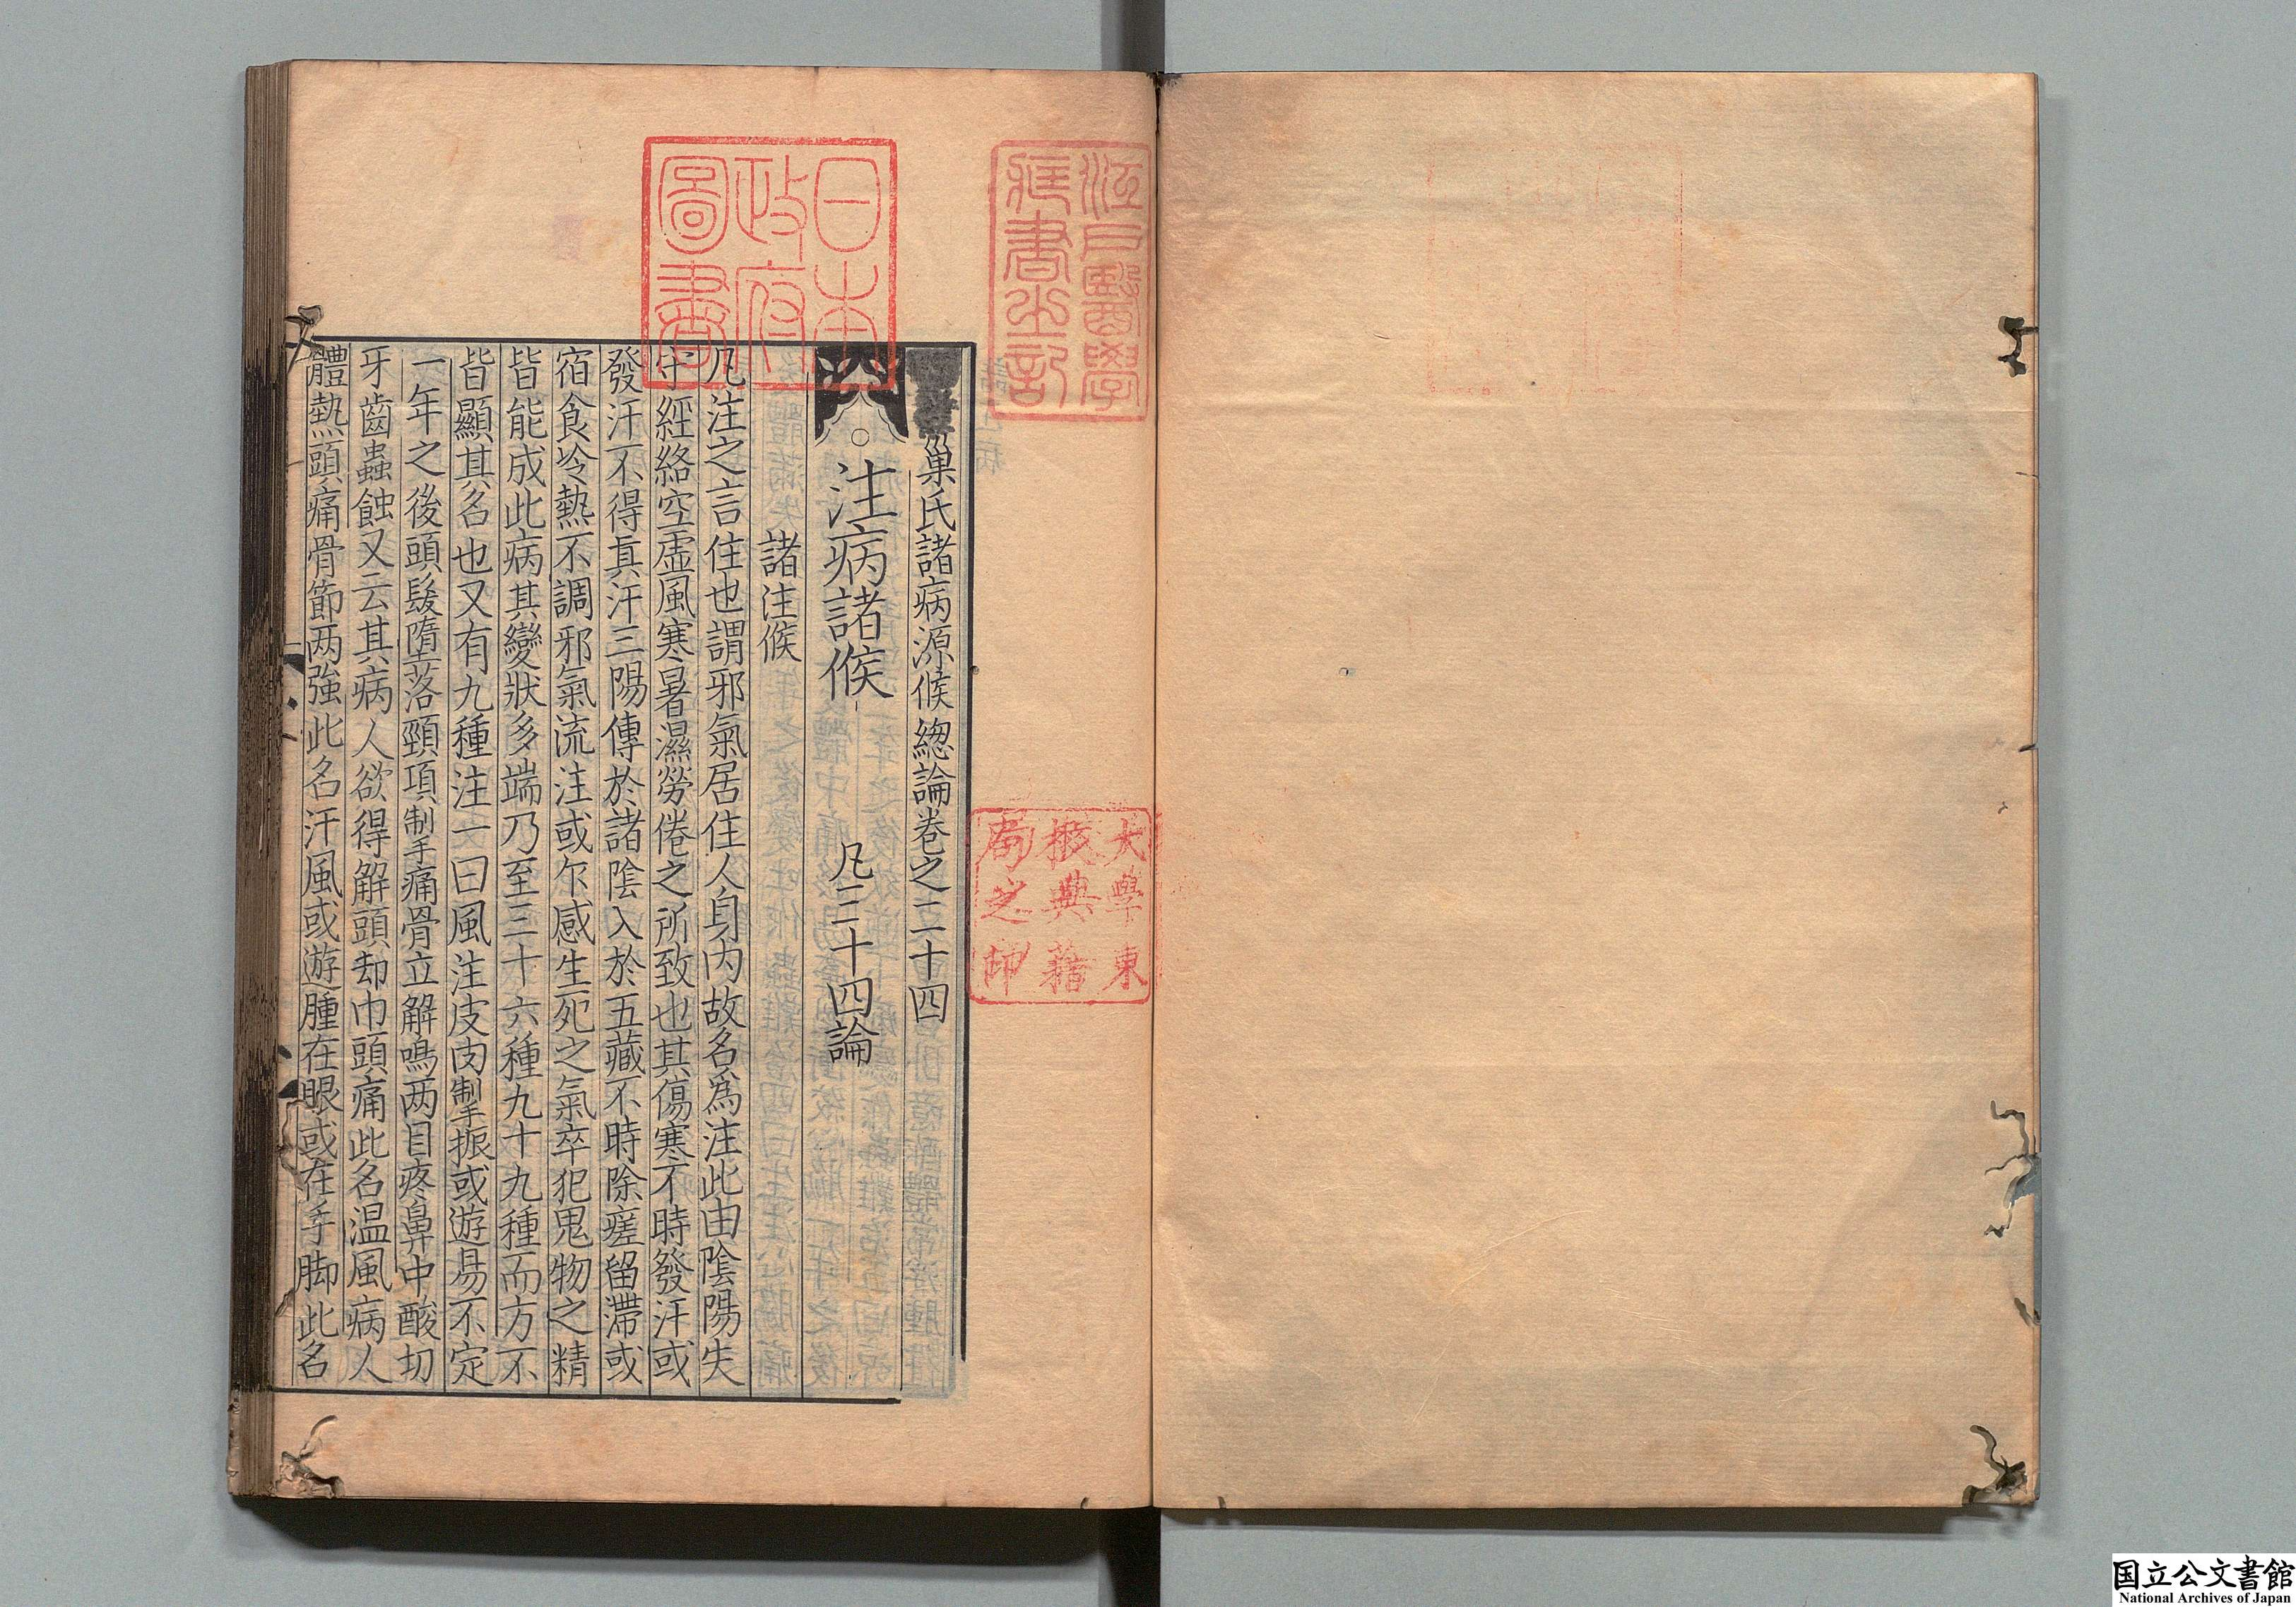 巢氏諸病源候緫論卷之二十四
○注病諸候　凡三十四論
諸注候
凡注之言住也謂邪氣居住人身内故名爲注此由陰陽失
守經絡空虚風寒暑濕勞倦之所致也其傷寒不時發汗或
發汗不得眞汗三陽傳於諸陰入於五藏不時除瘥留滯或
宿食冷熱不調邪氣流注或乍感生死之氣卒犯鬼物之精
皆能成此病其變狀多端乃至三十六種九十九種而方不
皆顯其名也又有九種注一曰風注皮肉掣振或遊易不定
一年之後頭髮墮落頸項掣痛骨立解鳴两目疼鼻中酸切
牙齒蟲蝕又云其病人欲得解頭却巾頭痛此名温風病人
體熱頭痛骨節两強此名汗風或遊腫在眼或在手脚此名
日本
政府
圖書
江戸醫學
藏書之記
大學東
校典籍
局之印
国立公文書館
National Archives of Japan